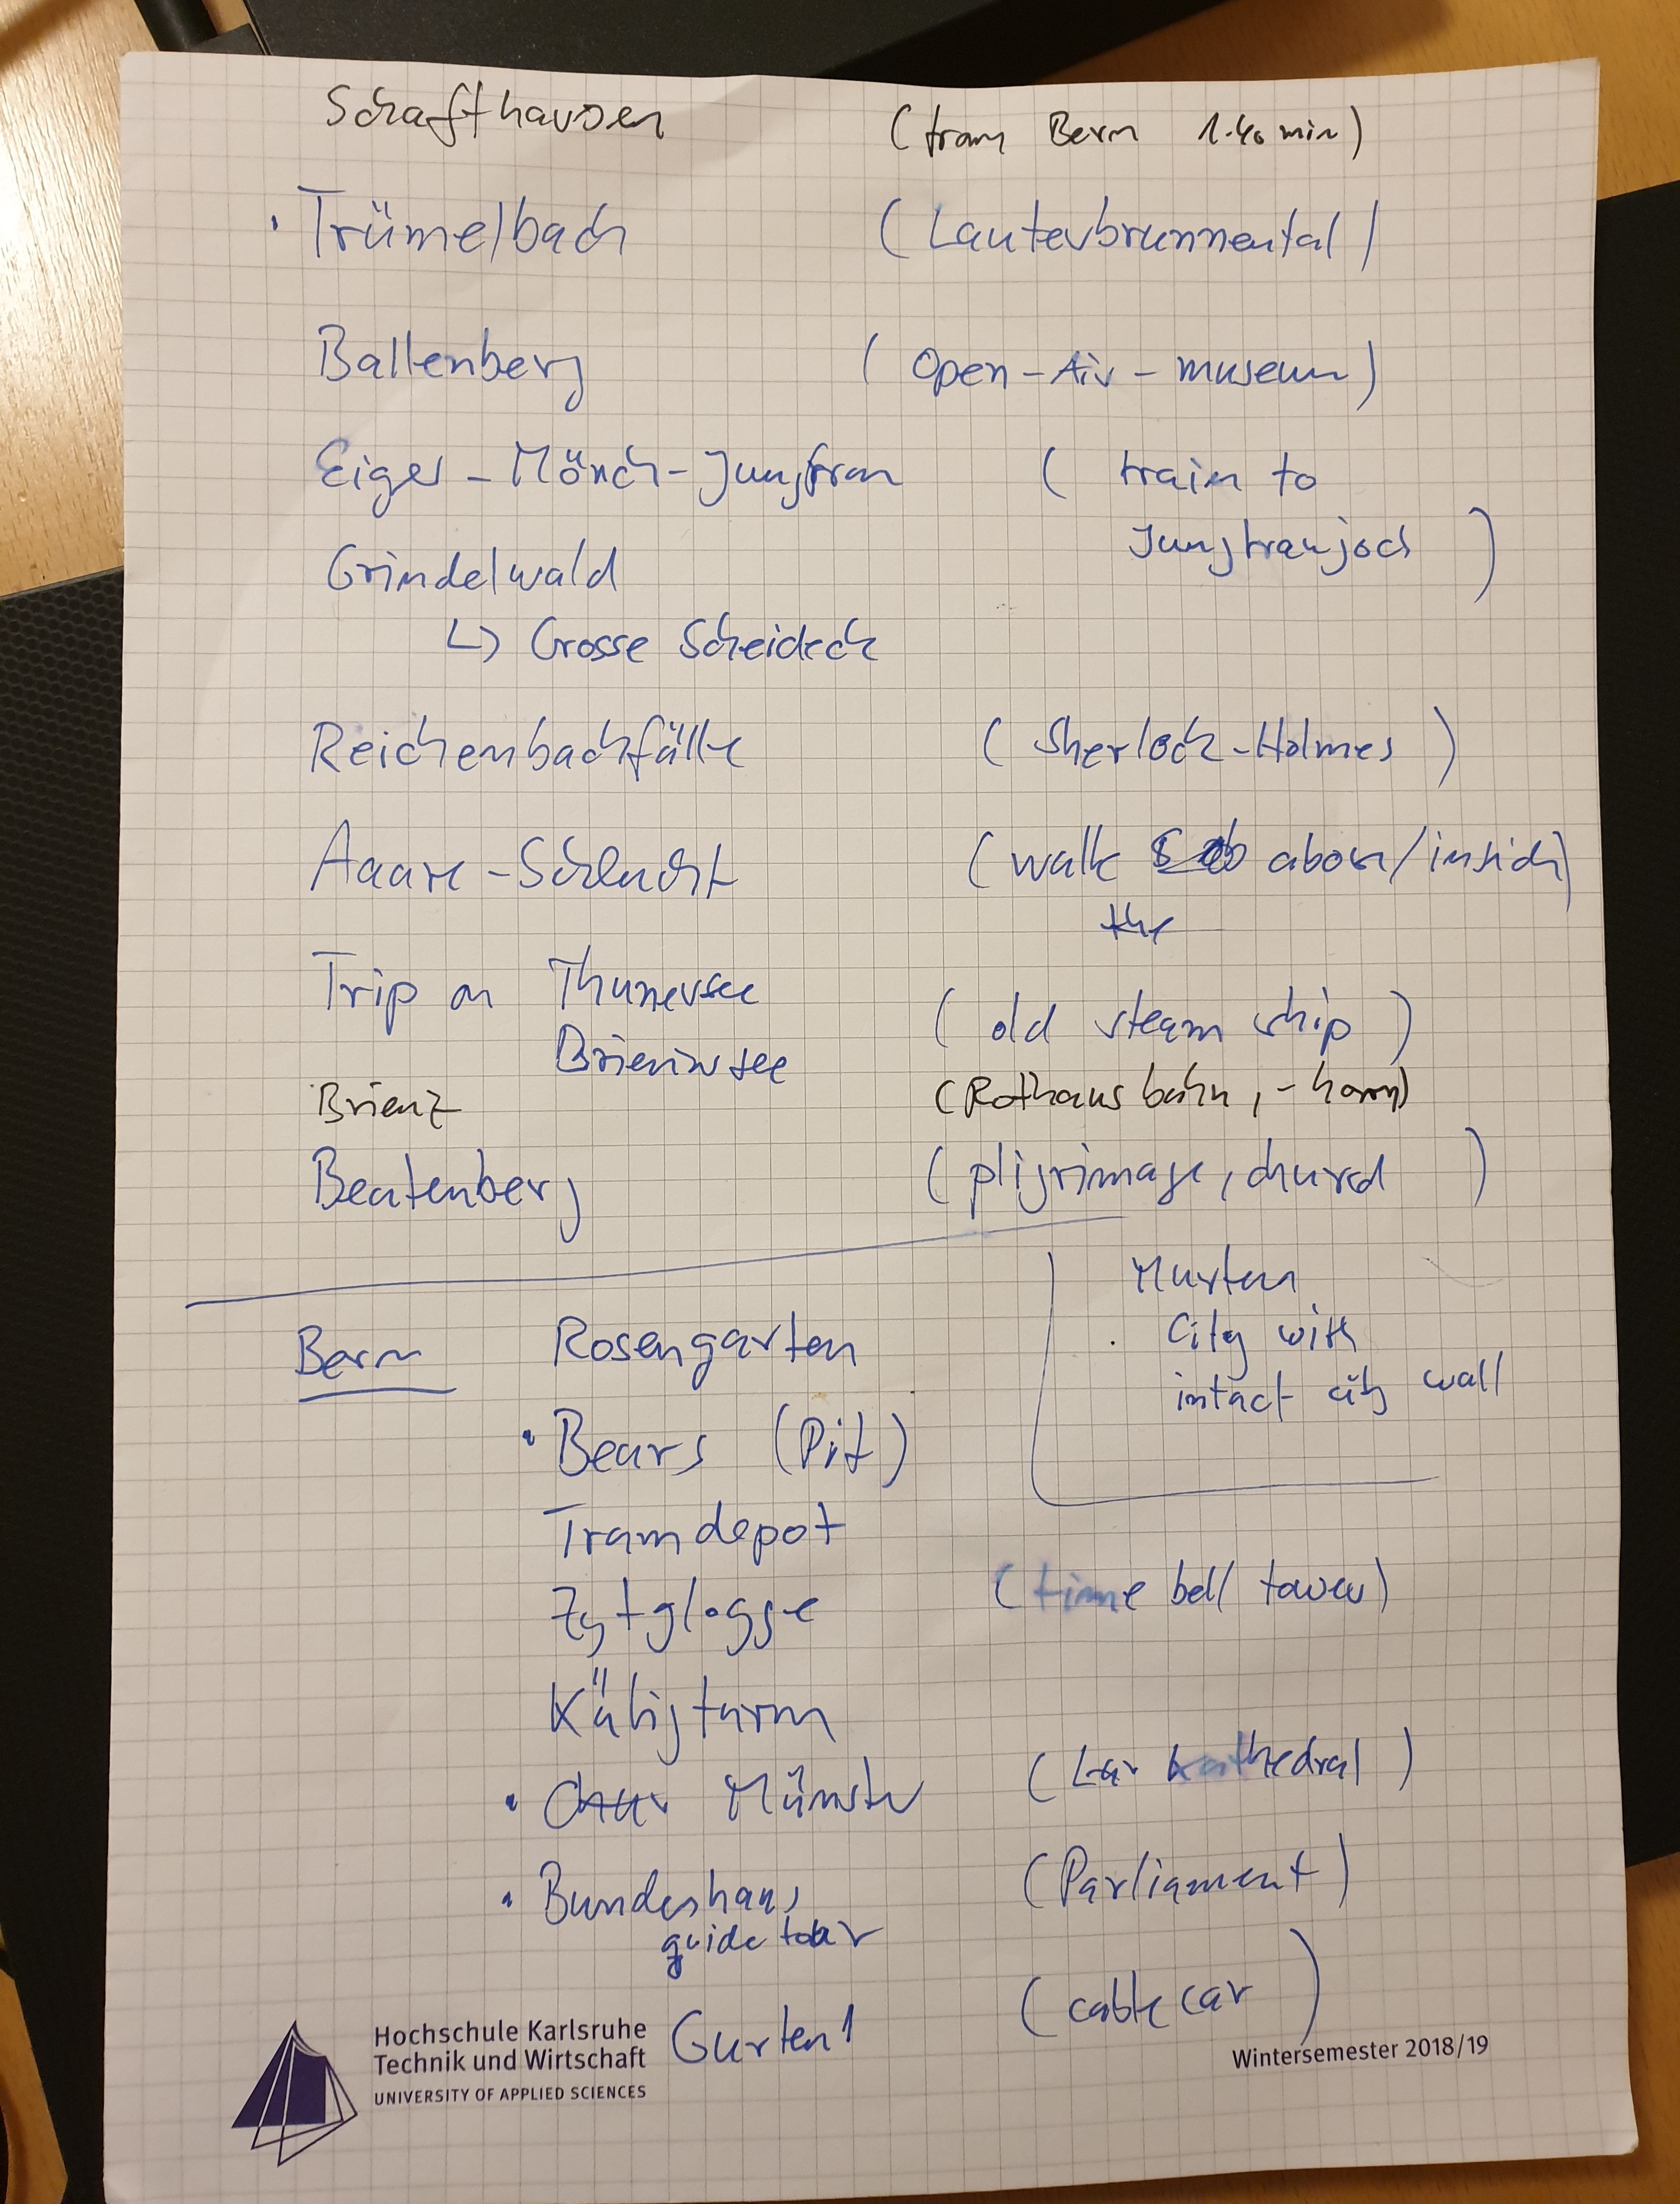 Schaffhausen (from Bern 1.40 min)
· Trümelbach (Lauterbrunnental)
Ballenberg (Open-Air-museum)
Eiger-Mönch-Jungfrau (train to
Jungfraujoch)
Grindelwald
↳ Grosse Scheideck
Reichenbachfälle (Sherlock-Holmes)
Aaare-Schlucht (walk above/inside)
the
Trip on Thunersee
Brienzersee (old steam ship)
Brienz (Rothausbahn, -horn)
Beatenberg (pligrimage, church)
Murten
City with
intact city wall
Bern Rosengarten
· Bears (Pit)
Tramdepot
Zytglogge (time bell tower)
Käfigturm
· Münster (kathedral)
· Bundeshaus (Parliament)
guide tour
Gurten! (cable car)
Hochschule Karlsruhe
Technik und Wirtschaft
UNIVERSITY OF APPLIED SCIENCES
Wintersemester 2018/19